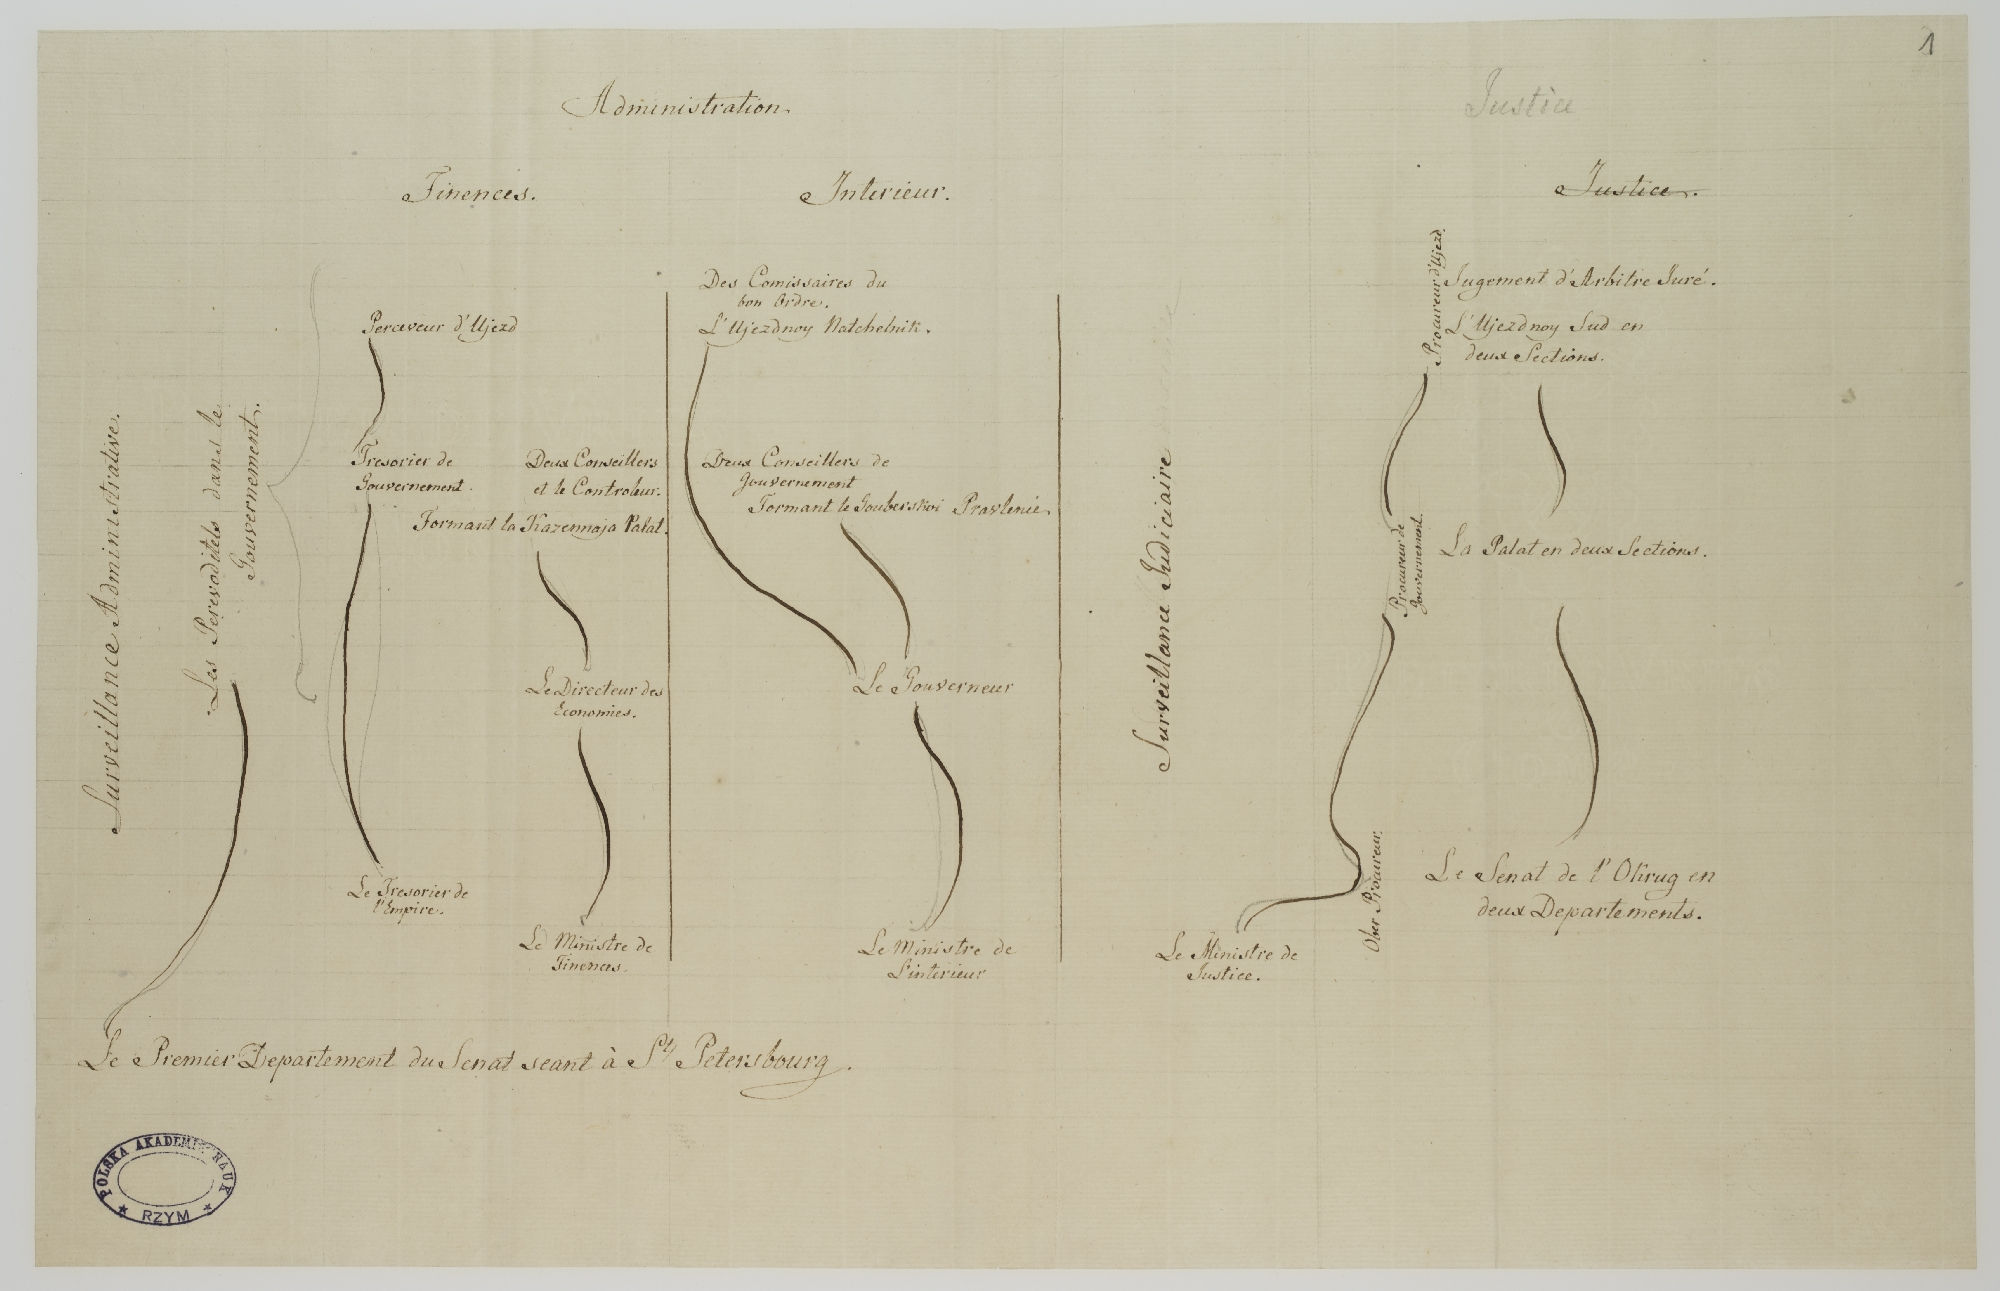 1
Administration.
Justice
Finences.
Interieur.
Justice.
Surveillance Administrative.
Les Perevoditels dans le
Gouvernement.
Perceveur d'Ujezd
Tresorier de
Gouvernement.
Deux Conseillers
et le Controleur.
Formant la Kazennaja Palat.
Le Directeur des
Economies.
Le Tresorier de
l'Empire.
Le Ministre de
Finences.
Des Comissaires du
bon Ordre.
L'Ujezdnoy Natchelnik.
Deux Conseillers de
Gouvernement
Formant le Gouberskoi Pravlenié.
Le Gouverneur
Le Ministre de
L'interieur
Surveillance Judiciaire
Procureur d'Ujezd.
Jugement d'Arbitre Juré.
L'Ujezdnoy Sud en
deux Sections.
Procureur de
Gouvernement.
La Palat en deux Sections.
Ober Procureur.
Le Senat de l'Okrug en
deux Departements.
Le Ministre de
Justice.
Le Premier Departement du Senat seant à St Petersbourg.
POLSKA AKADEMIA NAUK
RZYM